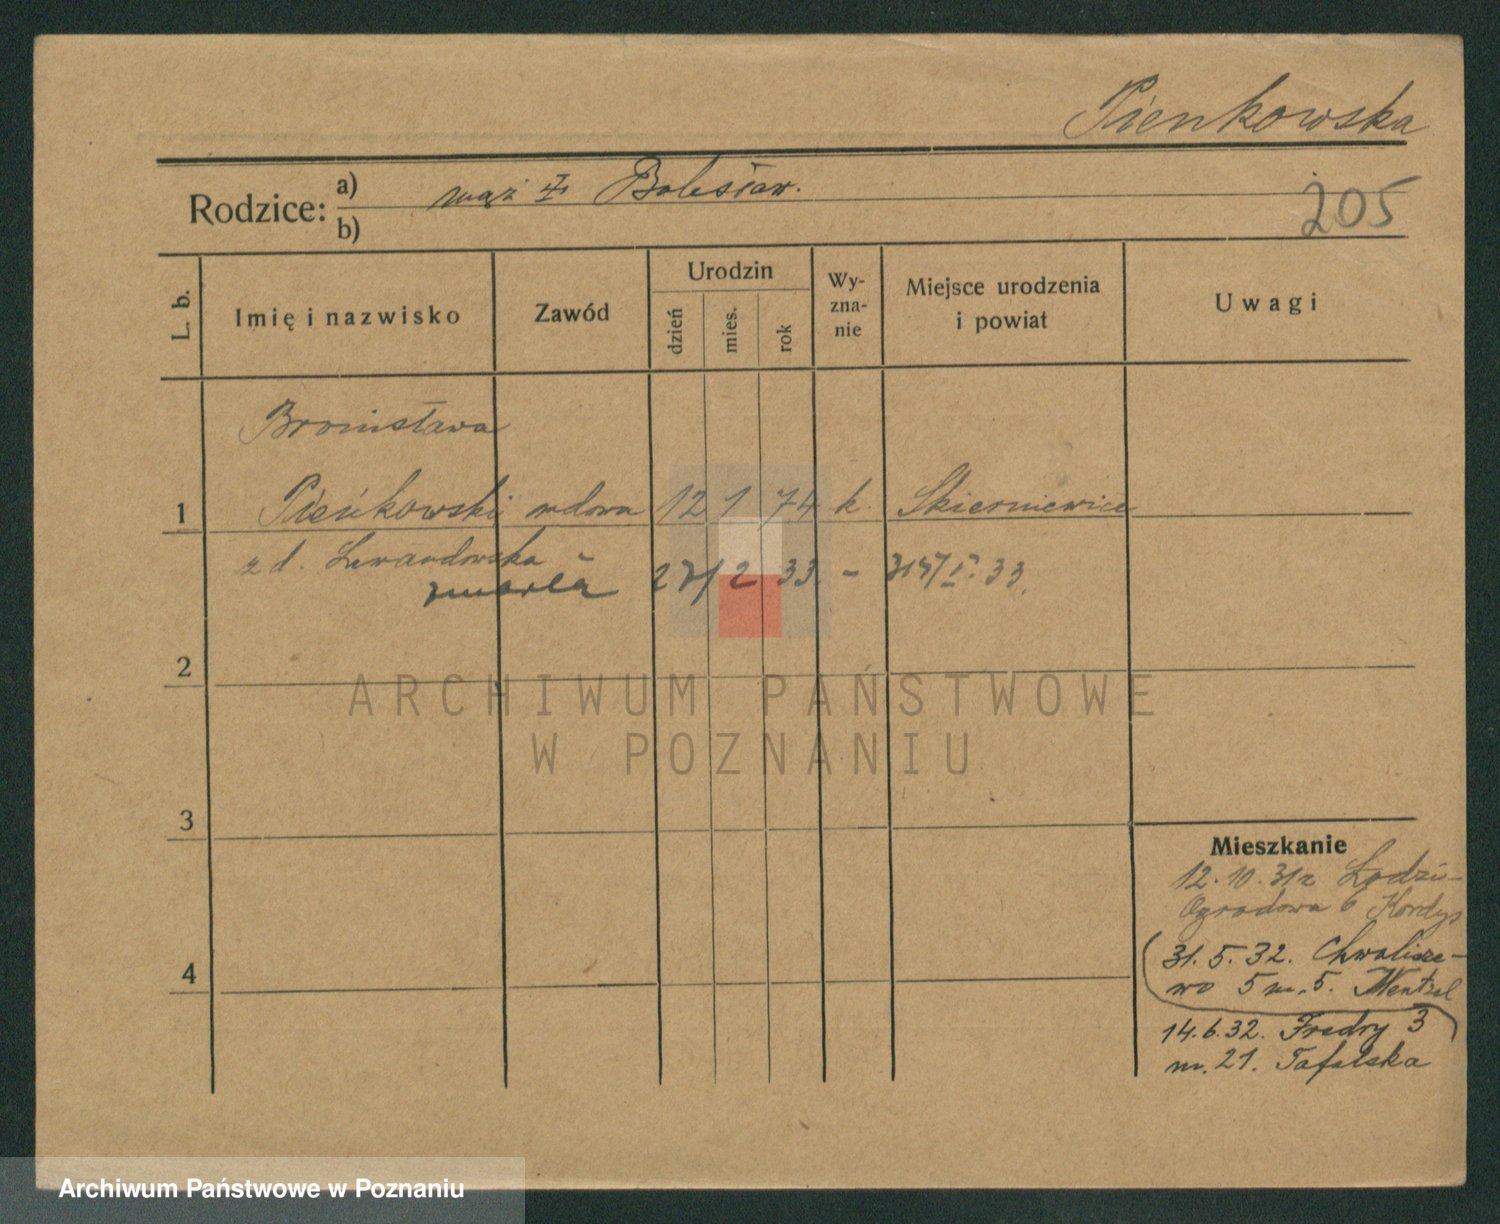 Pienkowska
Rodzice: a) mąż Bolesław.
b)
205
L. b. Imię i nazwisko Zawód Urodzin dzień mies. rok Wy-zna-nie Miejsce urodzenia i powiat Uwagi
Bronisława
1 Pieńkowski wdowa 12 1 74 k. Skierniewice
z d. Lewandowska
zmarła 27/2 33. –
2
ARCHIWUM PAŃSTWOWE
W POZNANIU
3
Mieszkanie
12.10.31 z Łodzi-
Ogrodowa 6 Kordys
31.5.32. Chwalisze-
4
wo 5 m. 5. Mentzel
14.6.32. Fredry 3
m. 21. Tafelska
Archiwum Państwowe w Poznaniu